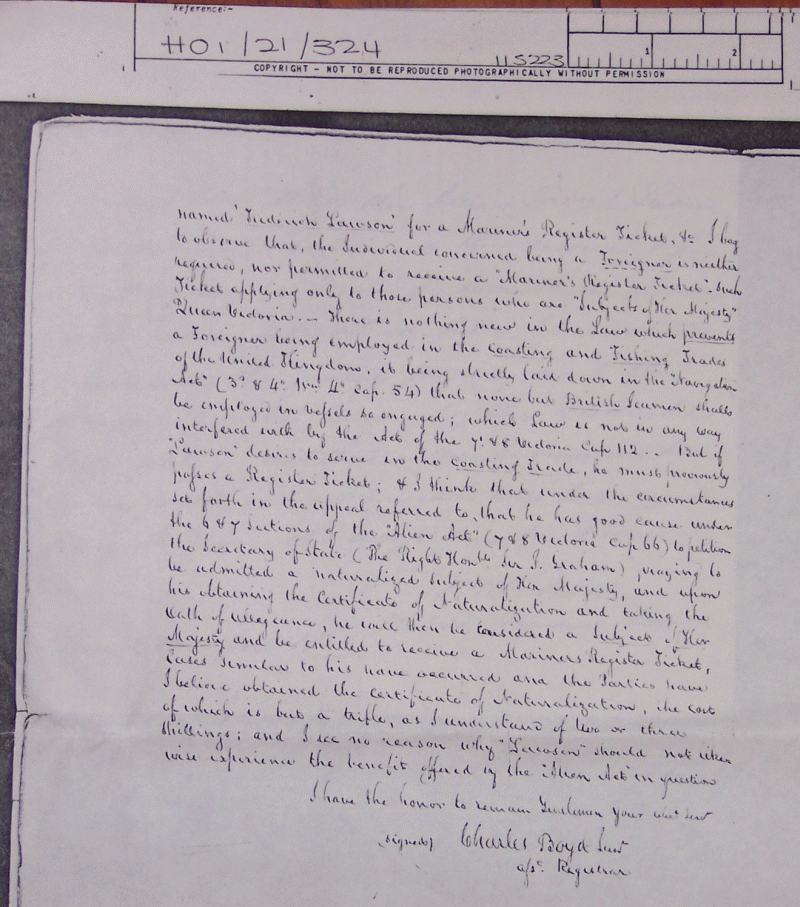 Reference:-
HO1/21/324
115223
1
2
COPYRIGHT - NOT TO BE REPRODUCED PHOTOGRAPHICALLY WITHOUT PERMISSION
named "Frederick Lawson" for a Mariner's Register Ticket, &c I beg
to observe that, the Individual concerned being a Foreigner is neither
required, nor permitted to receive a "Mariner's Register Ticket". Such
Ticket applying only to those persons who are "Subjects of Her Majesty"
Queen Victoria. — There is nothing new in the Law which prevents
a Foreigner being employed in the Coasting and Fishing Trades
of the United Kingdom, it being strictly laid down in the "Navigation
Act" (3d & 4th Wm 4th Cap. 54) that none but British Seamen shall
be employed in vessels so engaged; which Law is not in any way
interfered with by the Act of the 7 & 8 Victoria Cap 112. . But if
"Lawson" desires to serve in the Coasting Trade, he must previously
possess a Register Ticket; & I think that under the circumstances
set forth in the appeal referred to, that he has good cause under
the 6 & 7 Sections of the "Alien Act" (7 & 8 Victoria Cap 66) to petition
the Secretary of State (The Right Honble Sir J. Graham) praying to
be admitted a naturalized Subject of Her Majesty, and upon
his obtaining the Certificate of Naturalization and taking the
Oath of Allegiance, he will then be considered a Subject of Her
Majesty and be entitled to receive a Mariners Register Ticket,
Cases similar to his have occurred and the Parties have
I believe obtained the Certificate of Naturalization, the cost
of which is but a trifle, as I understand of two or three
Shillings; and I see no reason why "Lawson" should not like
wise experience the benefit offered by the "Alien Act" in question
I have the honor to remain Gentlemen Your Servt
(signed) Charles Boyd Lieut
Registrar